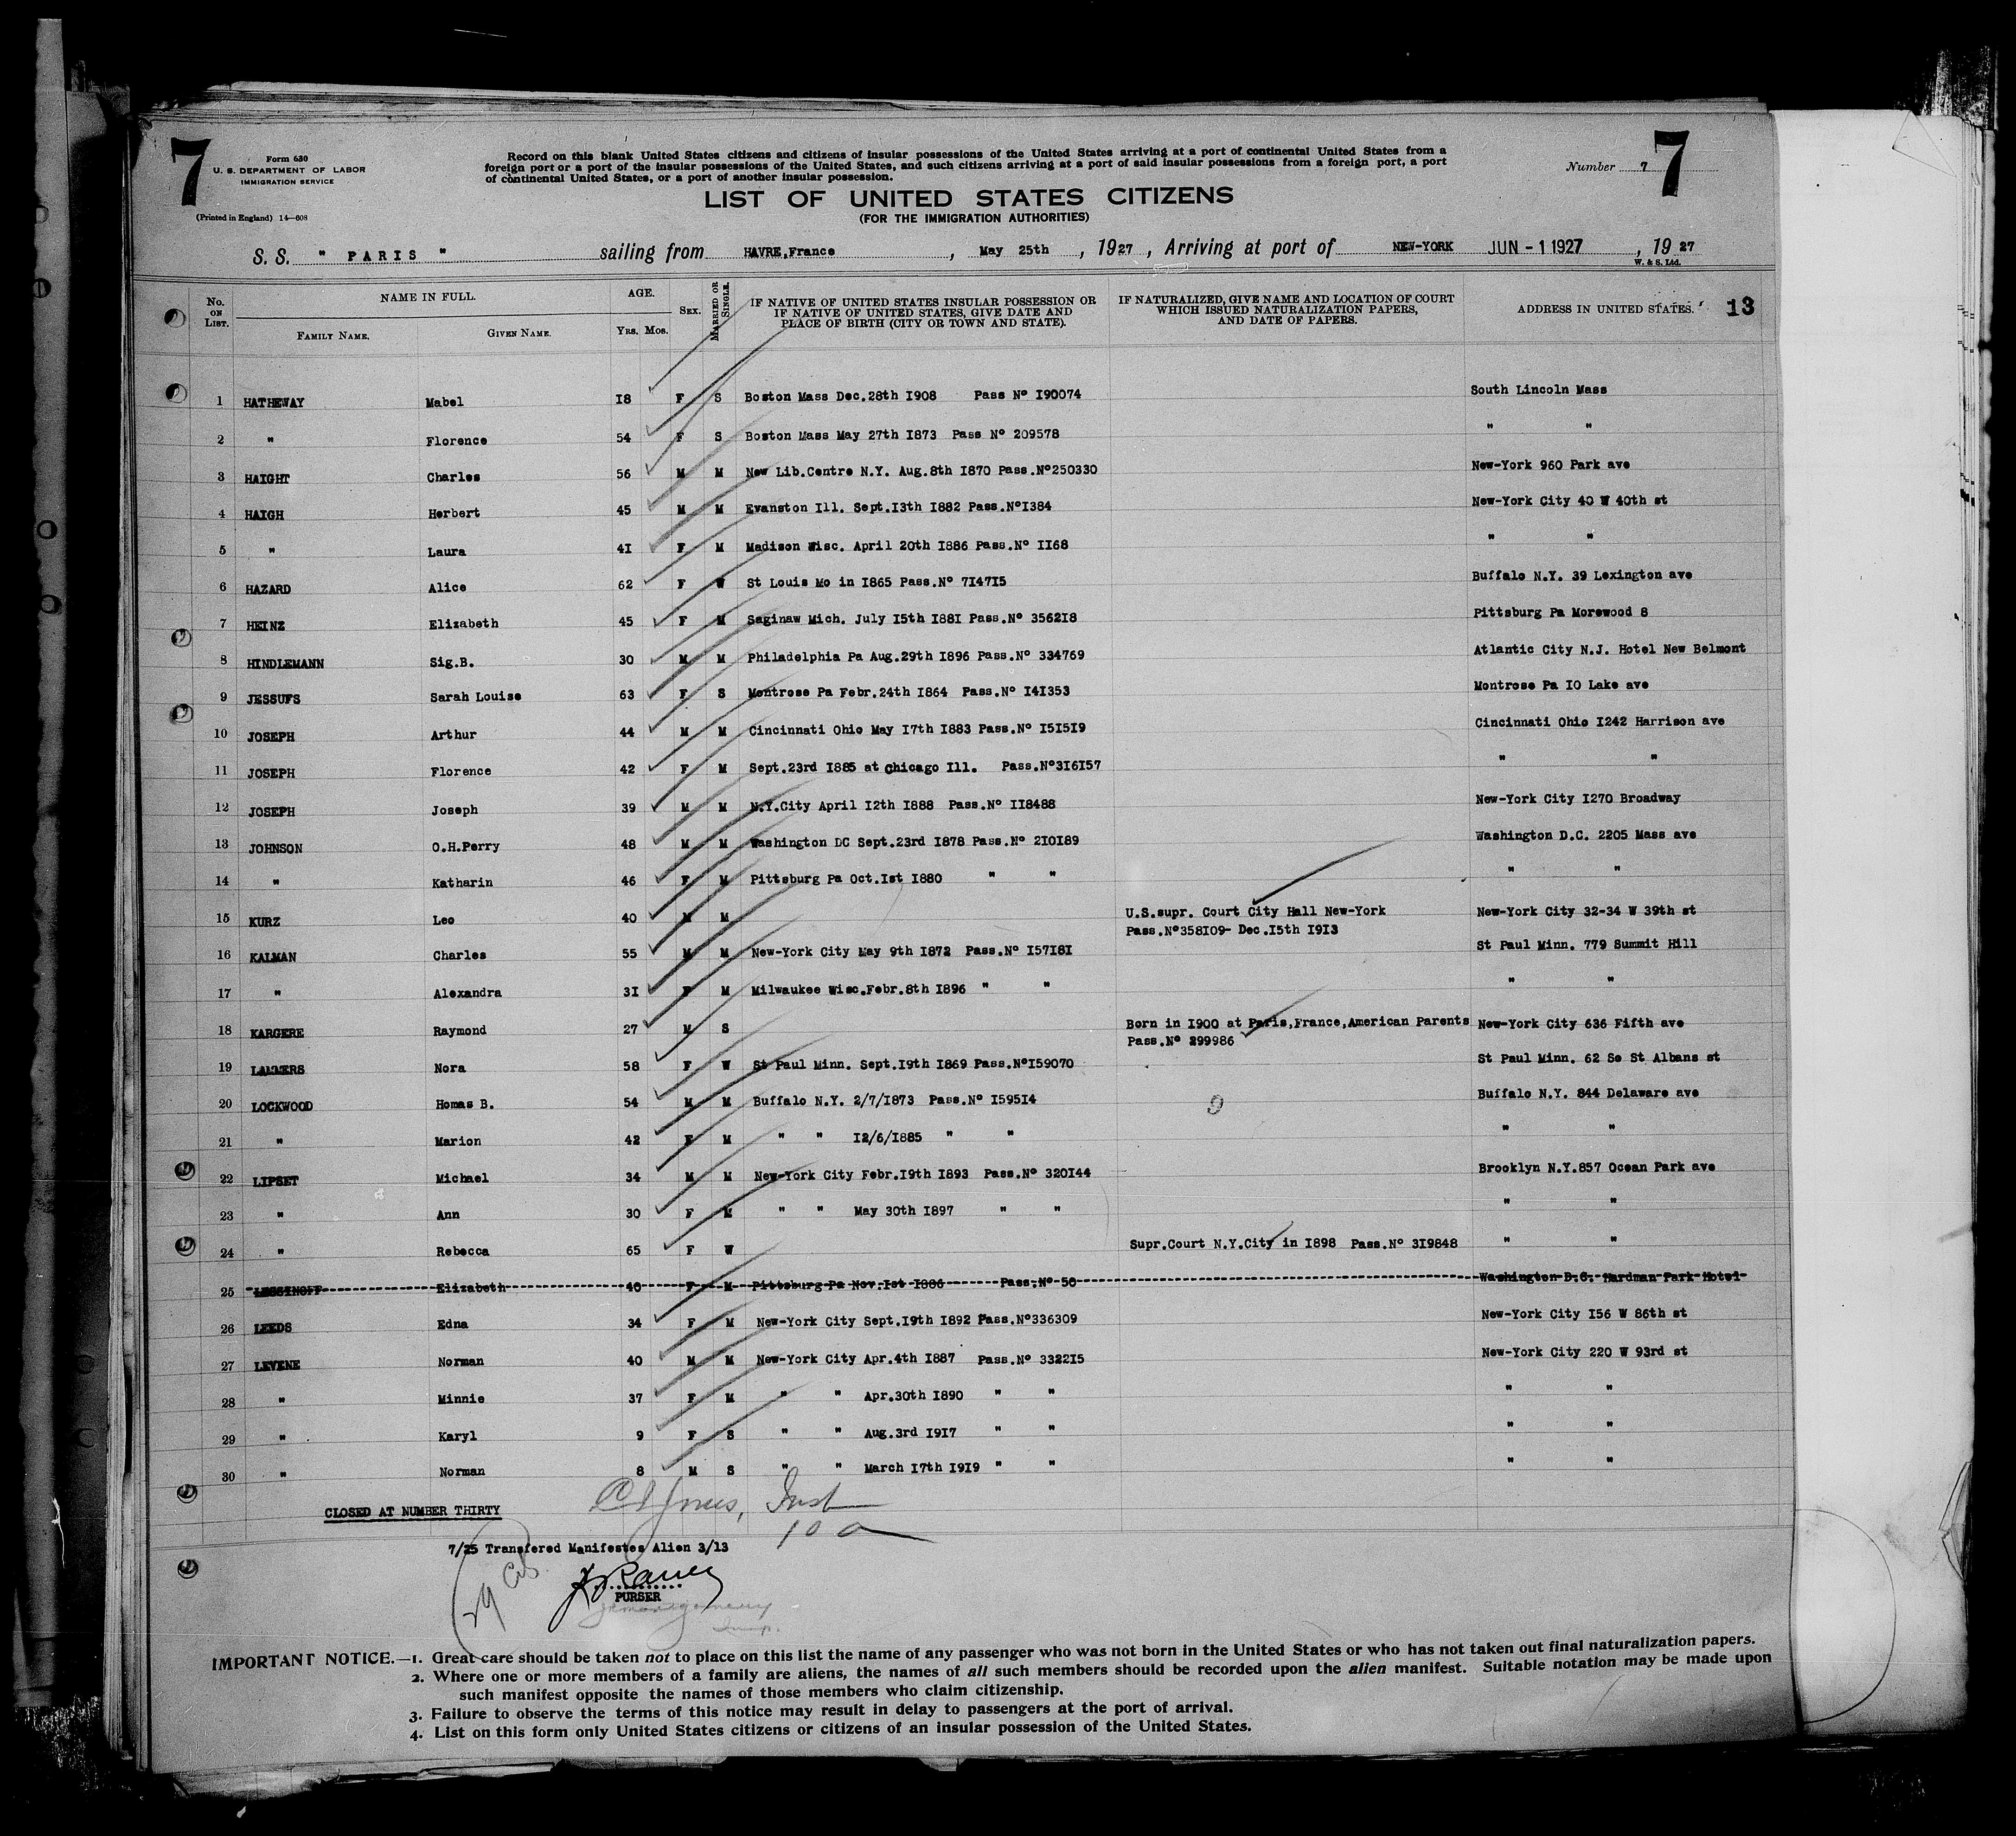 7
Form 630
U. S. DEPARTMENT OF LABOR
IMMIGRATION SERVICE
(Printed in England) 14—608
Record on this blank United States citizens and citizens of insular possessions of the United States arriving at a port of continental United States from a
foreign port or a port of the insular possessions of the United States, and such citizens arriving at a port of said insular possessions from a foreign port, a port
of continental United States, or a port of another insular possession.
Number 7 7
LIST OF UNITED STATES CITIZENS
(FOR THE IMMIGRATION AUTHORITIES)
S. S. " PARIS " sailing from HAVRE,France , May 25th , 1927 , Arriving at port of NEW-YORK JUN - 1 1927 , 19 27
W. & S. Ltd.
No. ON LIST. NAME IN FULL. FAMILY NAME. GIVEN NAME. AGE. YRS. MOS. SEX. MARRIED OR SINGLE. IF NATIVE OF UNITED STATES INSULAR POSSESSION OR IF NATIVE OF UNITED STATES, GIVE DATE AND PLACE OF BIRTH (CITY OR TOWN AND STATE). IF NATURALIZED, GIVE NAME AND LOCATION OF COURT WHICH ISSUED NATURALIZATION PAPERS, AND DATE OF PAPERS. ADDRESS IN UNITED STATES. 13
1 HATHEWAY Mabel I8 F S Boston Mass Dec.28th I908 Pass Nº I90074 South Lincoln Mass
2 " Florence 54 F S Boston Mass May 27th I873 Pass Nº 209578 " "
3 HAIGHT Charles 56 M M New Lib.Centre N.Y. Aug.8th I870 Pass.Nº250330 New-York 960 Park ave
4 HAIGH Herbert 45 M M Evanston Ill. Sept.I3th I882 Pass.NºI384 New-York City 40 W 40th st
5 " Laura 4I F M Madison Wisc. April 20th I886 Pass.Nº II68 " "
6 HAZARD Alice 62 F W St Louis Mo in I865 Pass.Nº 7I47I5 Buffalo N.Y. 39 Lexington ave
7 HEINZ Elizabeth 45 F M Saginaw Mich. July I5th I88I Pass.Nº 3562I8 Pittsburg Pa Morewood 8
8 HINDLEMANN Sig.B. 30 M M Philadelphia Pa Aug.29th I896 Pass.Nº 334769 Atlantic City N.J. Hotel New Belmont
9 JESSUFS Sarah Louise 63 F S Montrose Pa Febr.24th I864 Pass.Nº I4I353 Montrose Pa IO Lake ave
10 JOSEPH Arthur 44 M M Cincinnati Ohio May I7th I883 Pass.Nº I5I5I9 Cincinnati Ohio I242 Harrison ave
11 JOSEPH Florence 42 F M Sept.23rd I885 at Chicago Ill. Pass.Nº3I6I57 " "
12 JOSEPH Joseph 39 M M N.Y.City April I2th I888 Pass.Nº II8488 New-York City I270 Broadway
13 JOHNSON O.H.Perry 48 M M Washington DC Sept.23rd I878 Pass.Nº 2I0I89 Washington D.C. 2205 Mass ave
14 " Katharin 46 F M Pittsburg Pa Oct.Ist I880 " " " "
15 KURZ Leo 40 M M U.S.supr. Court City Hall New-York New-York City 32-34 W 39th st
Pass.Nº358I09- Dec.I5th I9I3
16 KALMAN Charles 55 M M New-York City May 9th I872 Pass.Nº I57I8I St Paul Minn. 779 Summit Hill
17 " Alexandra 3I F M Milwaukee Wisc.Febr.8th I896 " " " "
18 KARGERE Raymond 27 M S Born in I900 at Paris,France,American Parents New-York City 636 Fifth ave
Pass.Nº 299986
19 LAMMERS Nora 58 F W St Paul Minn. Sept.I9th I869 Pass.NºI59070 St Paul Minn. 62 So St Albans st
20 LOCKWOOD Homas B. 54 M M Buffalo N.Y. 2/7/I873 Pass.Nº I595I4 9 Buffalo N.Y. 844 Delaware ave
21 " Marion 42 F M " " I2/6/I885 " " " "
22 LIPSET Michael 34 M M New-York City Febr.I9th I893 Pass.Nº 320I44 Brooklyn N.Y.857 Ocean Park ave
23 " Ann 30 F M " " May 30th I897 " " " "
24 " Rebecca 65 F W Supr.Court N.Y.City in I898 Pass.Nº 3I9848 " "
25 LESSINOFF Elizabeth 40 F M Pittsburg Pa Nov.Ist I886 Pass.Nº 50 Washington D.C. Wardman Park Hotel
26 LEEDS Edna 34 F M New-York City Sept.I9th I892 Pass.Nº336309 New-York City I56 W 86th st
27 LEVENE Norman 40 M M New-York City Apr.4th I887 Pass.Nº 3322I5 New-York City 220 W 93rd st
28 " Minnie 37 F M " " Apr.30th I890 " " " "
29 " Karyl 9 F S " " Aug.3rd I9I7 " " " "
30 " Norman 8 M S " " March I7th I9I9 " " " "
CLOSED AT NUMBER THIRTY
7/25 Transfered Manifestes Alien 3/13
29
PURSER
IMPORTANT NOTICE.—1. Great care should be taken not to place on this list the name of any passenger who was not born in the United States or who has not taken out final naturalization papers.
2. Where one or more members of a family are aliens, the names of all such members should be recorded upon the alien manifest. Suitable notation may be made upon
such manifest opposite the names of those members who claim citizenship.
3. Failure to observe the terms of this notice may result in delay to passengers at the port of arrival.
4. List on this form only United States citizens or citizens of an insular possession of the United States.